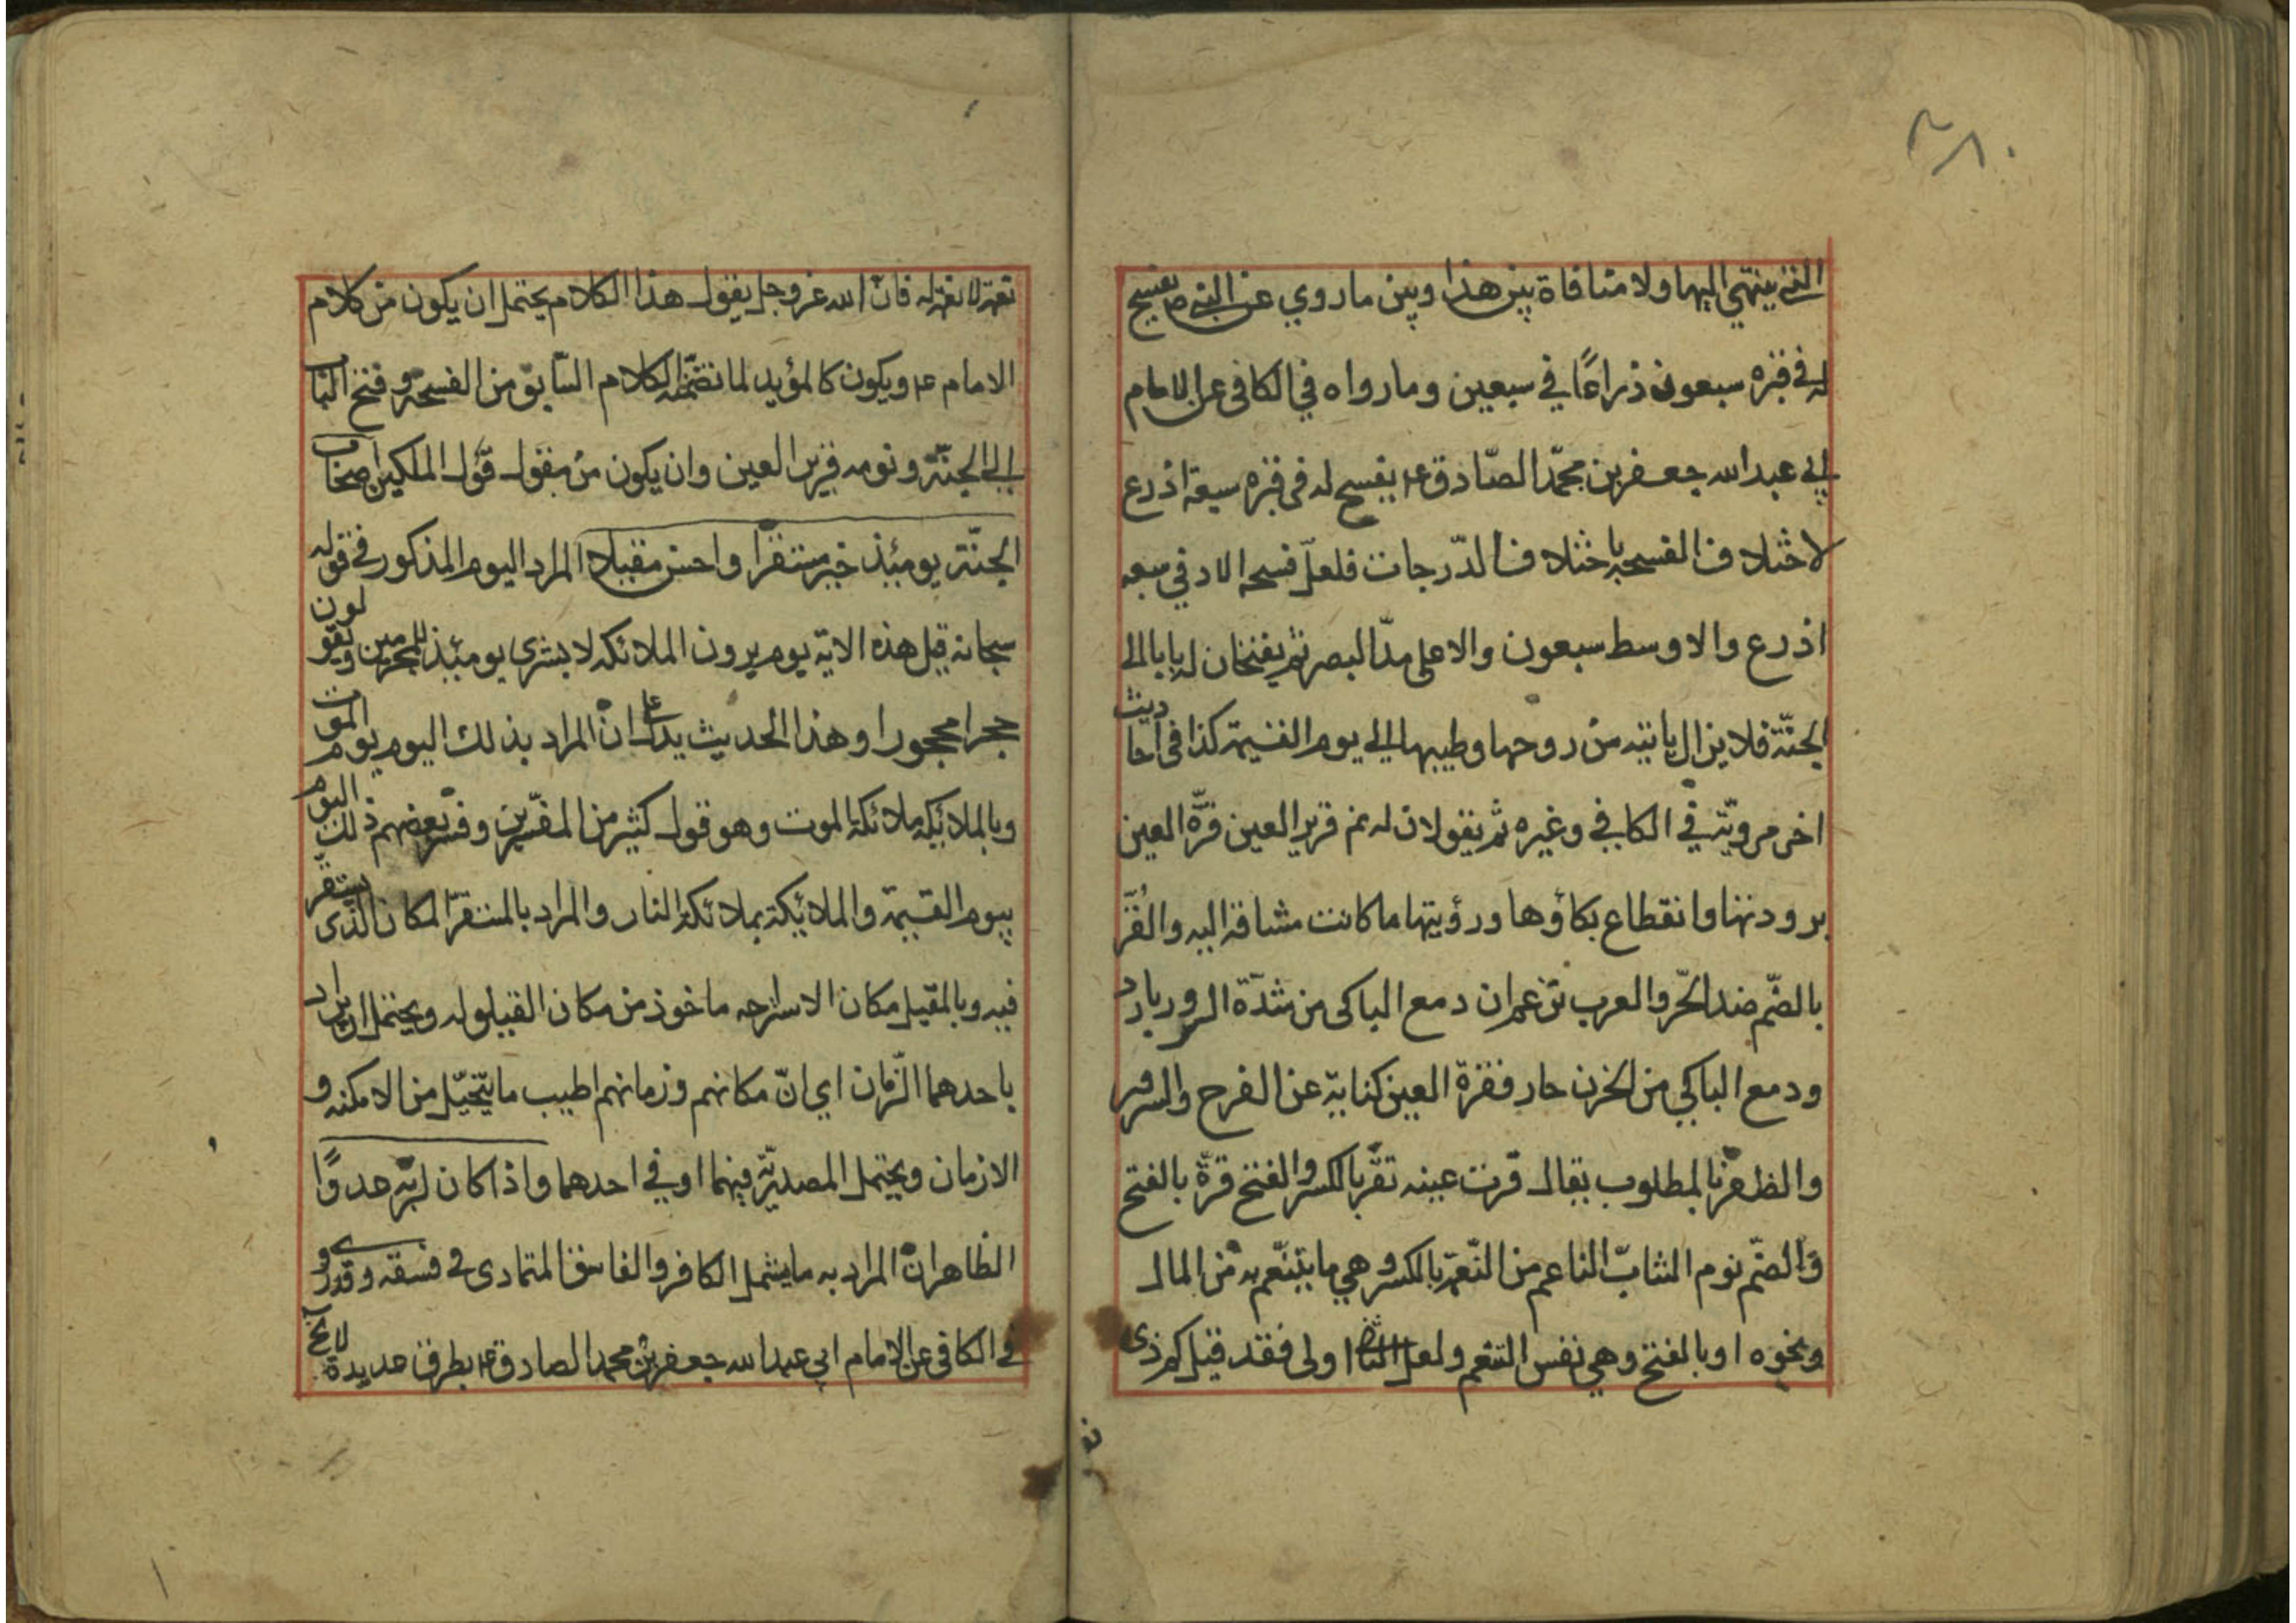 ٢٨٠
التي ينتهي اليها ولا منافاة بين هذا وبين ما روي عن النبي ص يفسح
له في قبره سبعون ذراعًا في سبعين وما رواه في الكافي عن الامام
ابي عبد الله جعفر بن محمّد الصّادق ع يفسح له في قبره سبعة اذرع
لاختلاف الفسحة باختلاف الدّرجات فلعلّ فسحه الادنى سبعه
اذرع والاوسط سبعون والاعلى مدّ البصر ثم يفتحان له بابا الى
الجنّة فلا يزال يأتيه من روحها وطيبها الى يوم القيمة كذا في احاديث
اخر مرويّة في الكافي وغيره ثم يقولان له نم قرير العين قرّة العين
برودتها وانقطاع بكاؤها ورؤيتها ما كانت مشتاقة اليه والقُرّ
بالضّم ضد الحّر والعرب تزعم ان دمع الباكي من شدّة السرور بارد
ودمع الباكي من الحزن حار فقرّة العين كناية عن الفرح والسرور
والظفر بالمطلوب يقال قرت عينه تقّر بالكسر والفتح قرّة بالفتح
والضّم نوم الشابّ الناعم من النّعمة بالكسر وهي ما يتنّعم به من المال
ونحوه او بالفتح وهي نفس التنعم ولعل الثانى اولى فقد قيل كم ذى
نعمة لا نعمة له فانّ الله عز وجل يقول هذا الكلام يحتمل ان يكون من كلام
الامام ع ويكون كالمؤيد لما تضمّنه الكلام السّابق من الفسحة وفتح الباب
الى الجنّة ونومه قرير العين وان يكون من مقول قول الملكين اصحاب
الجنّة يومئذ خير مستقرا واحسن مقيلا المراد اليوم المذكور في قوله
سبحانه قبل هذه الاية يوم يرون الملائكه لا بشرى يومئذ للمجرمين ويقولون
حجرا محجورا وهذا الحديث يدل على انّ المراد بذلك اليوم يوم الموت
وبالملائكة ملائكة الموت وهو قول كثير من المفسّرين وفسّر بعضهم ذلك اليوم
بيوم القيمة والملائكة بملائكة النار والمراد بالمستقرّ المكان الّذى يستقّر
فيه وبالمقيل مكان الاستراحه ماخوذ من مكان القيلوله ويحتمل ان يراد
باحدهما الزّمان اي انّ مكانهم وزمانهم اطيب ما يتخيّل من الامكنه و
الازمان ويحتمل المصدريّة فيهما او في احدهما واذا كان لربّه عدوًا
الظاهر انّ المراد به ما يشمل الكافر والفاسق المتمادى في فسقه وقد روى
في الكافي عن الامام ابي عبد الله جعفر بن محمد الصادق ع بطرق عديدة